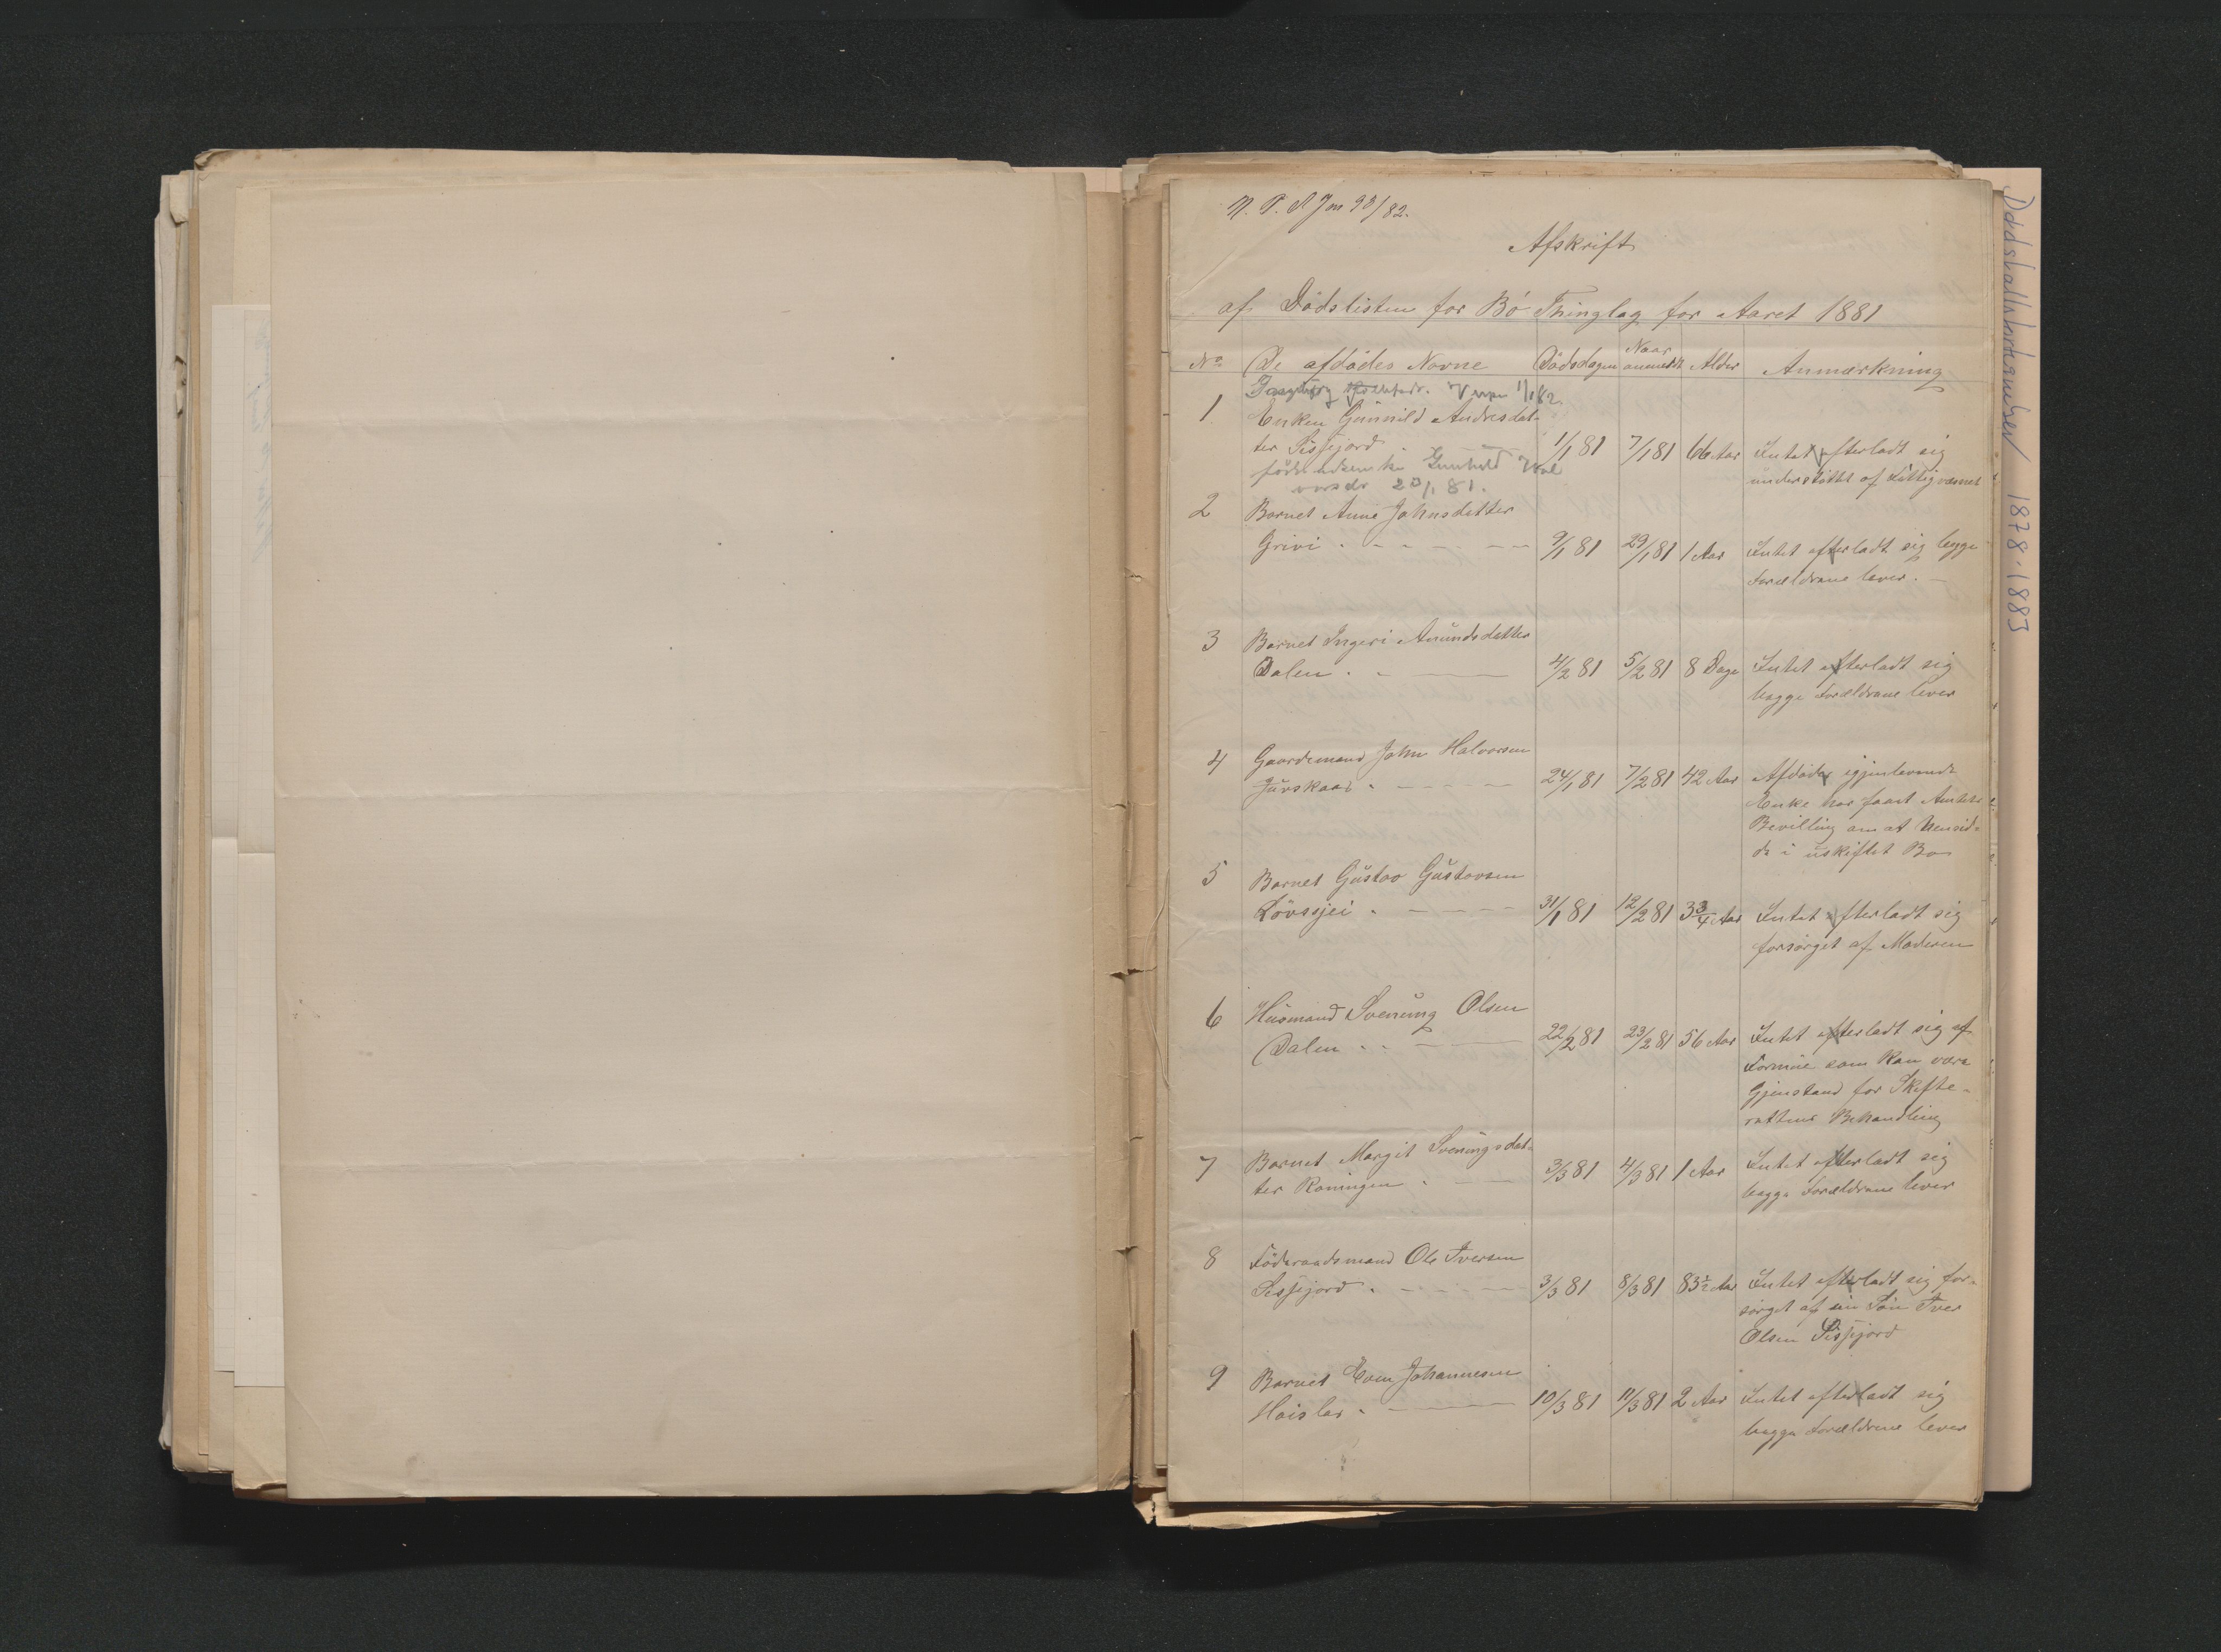 N. P. A Jm 93/82.
Afskrift
af Dödslisten for Bö Thinglag for Aaret 1881
No De afdödes Navne Dödsdagen Naar anmeldt Alder Anmærkning
1/1 82.
1 Enken Gunnild Andresdat-
ter Sisjord 1/1 81 7/1 81 66 Aar Intet efterladt sig
Gunhild understöttet af Fattigvæsnet
23/1 81.
2 Barnet Anne Johnsdatter
Grivi 9/1 81 29/1 81 1 Aar Intet efterladt sig begge
Forældrene lever.
3 Barnet Ingeri Amundsdatter
Dalen 4/2 81 5/2 81 8 Dage Intet efterladt sig
begge Forældrene lever
4 Gaardmand John Halvorsen
Jürskaas 24/1 81 7/2 81 42 Aar Afdödes igjenlevende
Enke har faaet Amtets
Bevilling om at hensid-
de i uskiftet Bo
5 Barnet Gustav Gustavsen
Lövssjei 31/1 81 12/2 81 3 3/4 Aar Intet efterladt sig
forsörget af Moderen
6 Husmand Svenung Olsen
Dalen 22/2 81 23/2 81 56 Aar Intet efterladt sig af
Formue som kan være
Gjenstand for Skifte-
rettens Behandling
7 Barnet Margit Svenungsdat-
ter Roningen 3/3 81 4/3 81 1 Aar Intet efterladt sig
begge Forældrene lever
8 Föderaadsmand Ole Iversen
Sisjord 3/3 81 8/3 81 83 1/2 Aar Intet efterladt sig for-
sörget af sin Sön Iver
Olsen Sisjord
9 Barnet Even Johannesen
Haislas 10/3 81 11/3 81 2 Aar Intet efterladt sig
begge Forældrene lever
Dødsfallsforhandler 1878-1883